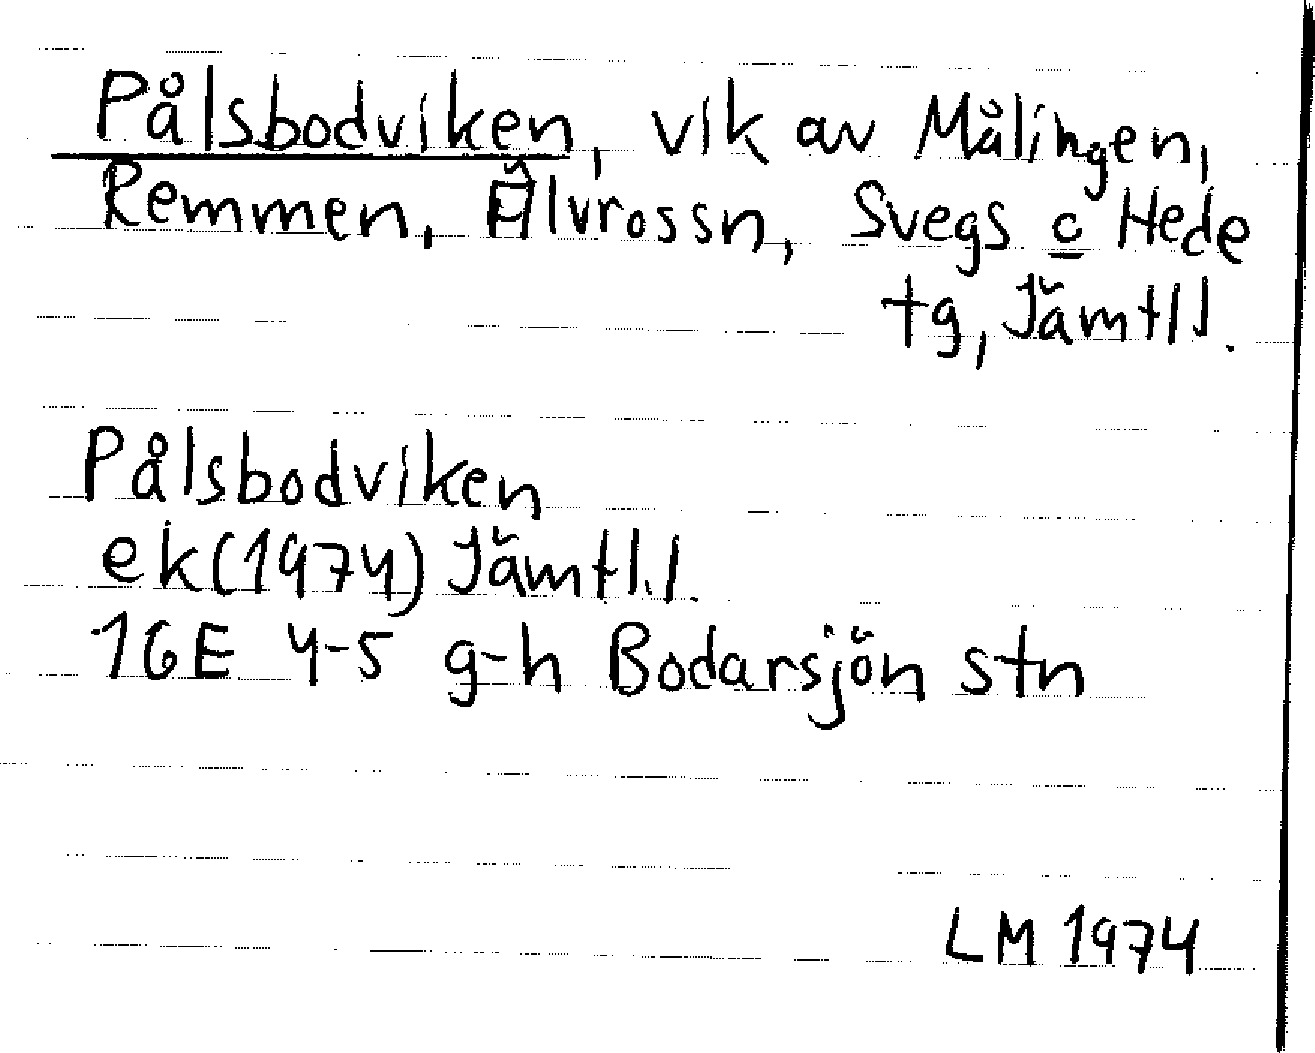 Pålsbodviken, vik av Målingen,
Remmen, Älvrossn, Svegs c Hede
tg, Jämtl l.
Pålsbodviken
ek(1974) Jämtl.l.
16E 4-5 g-h Bodarsjön stn
LM 1974